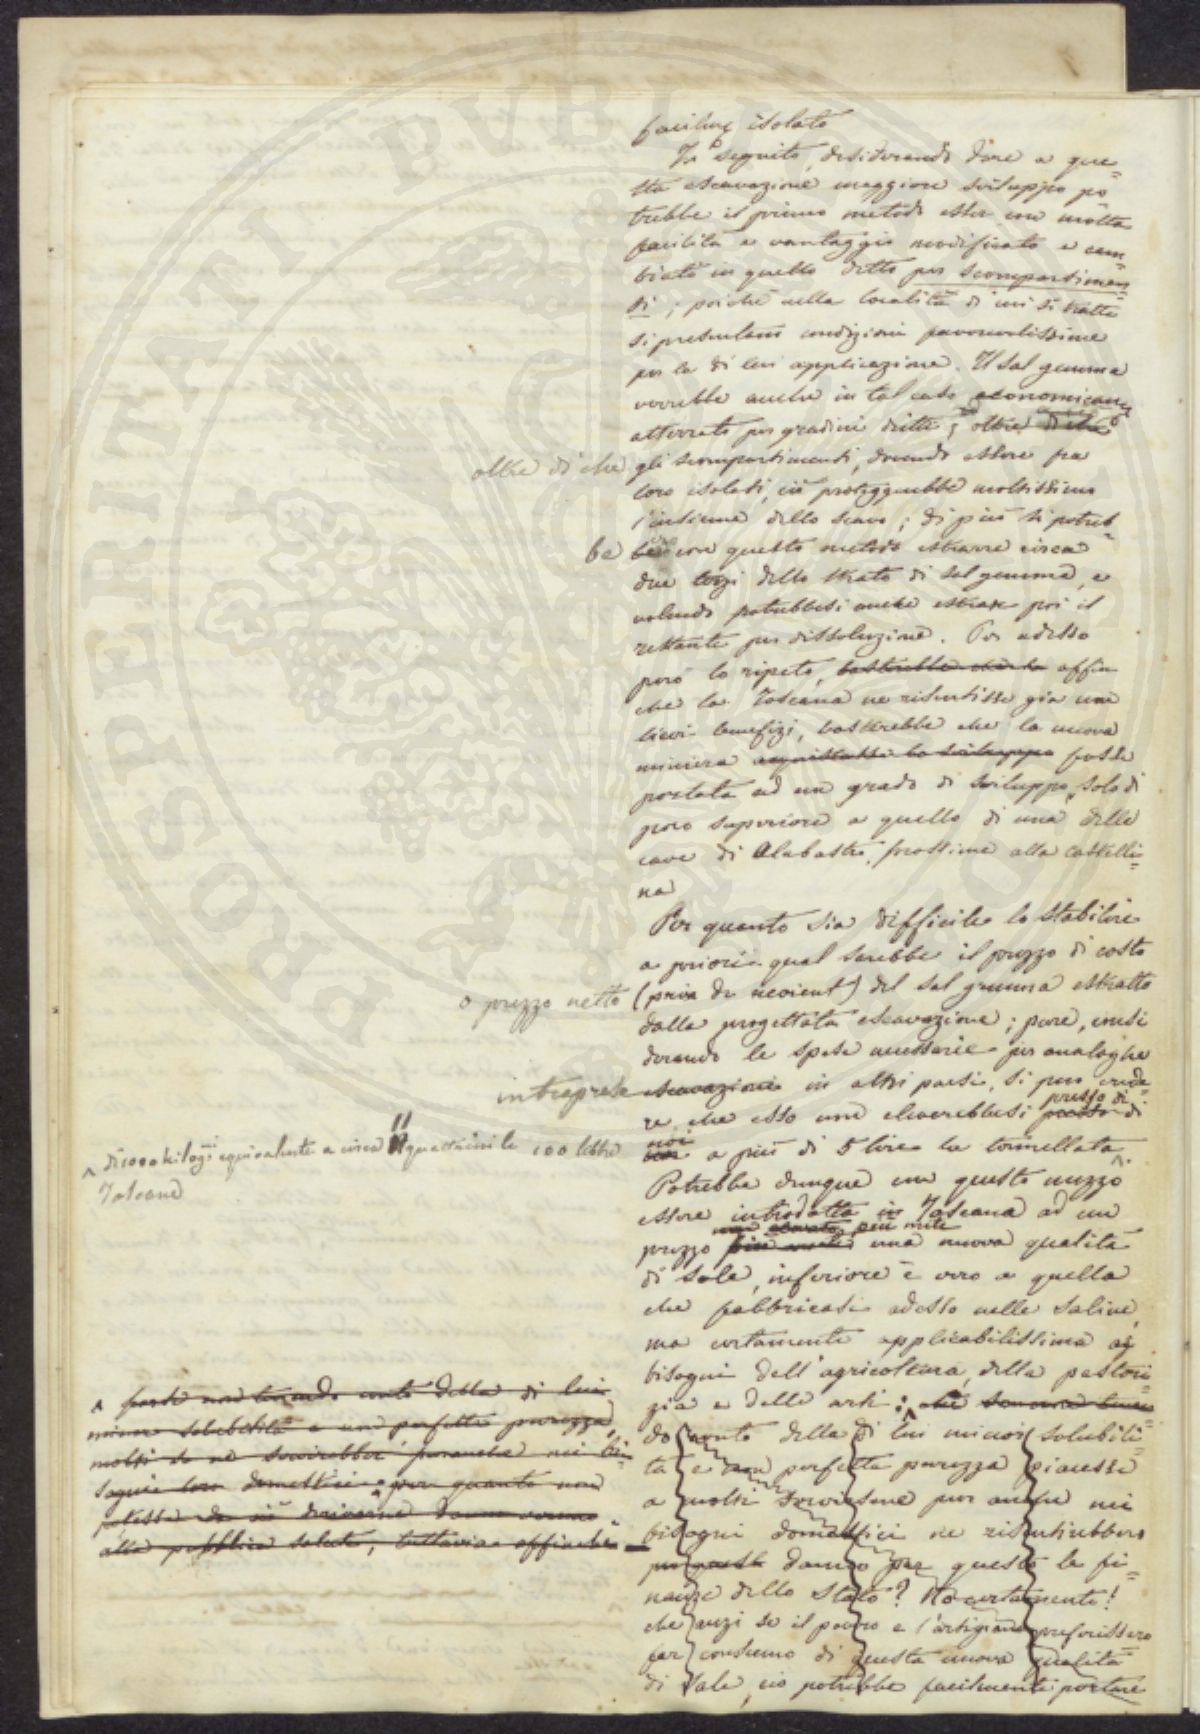 isolato
In seguito, desiderando dare a que=
sta escavazione maggiore sviluppo po=
trebbe il primo metodo esser con molta
facilità e vantaggio modificato e cam=
biato in quello detto per scompartimen=
ti; poiché nella località di cui si tratta
si presentano condizioni favorevolissime
per la di lui applicazione. Il sal gemma
verrebbe anche in tal caso
atterrato per gradini dritti; oltre di che
oltre di che gli scompartimenti, dovendo essere fra
loro isolati, ciò proteggerebbe moltissimo
l'insieme dello scavo; di più si potreb=
be con questo metodo estrarre circa
due terzi dello strato di sal gemma, e
volendo potrebbesi anche estrarre poi il
restante per dissoluzione. Per adesso
però lo ripeto, affin
che la Toscana ne risentisse già non
lievi benefizi, basterebbe che la nuova
miniera acquistasse lo sviluppo fosse
portata ad un grado di sviluppo, solo di
poco superiore a quello di una delle
cave di Alabastro, prossime alla Castelli=
na
Per quanto sia difficile lo stabilire
a priori qual sarebbe il prezzo di costo
o prezzo netto (prix de revient) del sal gemma estratto
dalla progettata escavazione; pure, consi
derando le spese necessarie per analoghe
intraprese escavazioni in altri paesi, si può crede=
re che esso non eleverebbesi presso di
noi a più di 5 lire la tonnellata
^ di 1000 kilogi equivalente a circa 11 quattrini le 100 libbre
Toscane
Potrebbe dunque con questo mezzo
essere introdotta in Toscana ad un
non elevato più mite
prezzo più mite una nuova qualità
di sale, inferiore è vero a quella
che fabbricasi adesso nelle saline,
ma certamente applicabilissima ai
bisogni dell'agricoltura, della pastori=
zia e delle arti; che
^ forse non tenendo conto della di lui
minor solubilità e non perfetta purezza,
molti se ne servirebbero nei bi=
sogni loro domestici e per quanto non
potesse da ciò derivarne danno veruno
alla pubblica salute, tuttavia affinchè
do conto della di lui minor solubili=
tà e non perfetta purezza piacesse
a molti servirsene pur anche nei
bisogni domestici ne risentirebbero
danno per questo le fi=
nanze dello Stato? No certamente!
che anzi se il povero e l'artigiano preferissero
far consumo di questa nuova qualità
di sale, ciò potrebbe facilmente portare